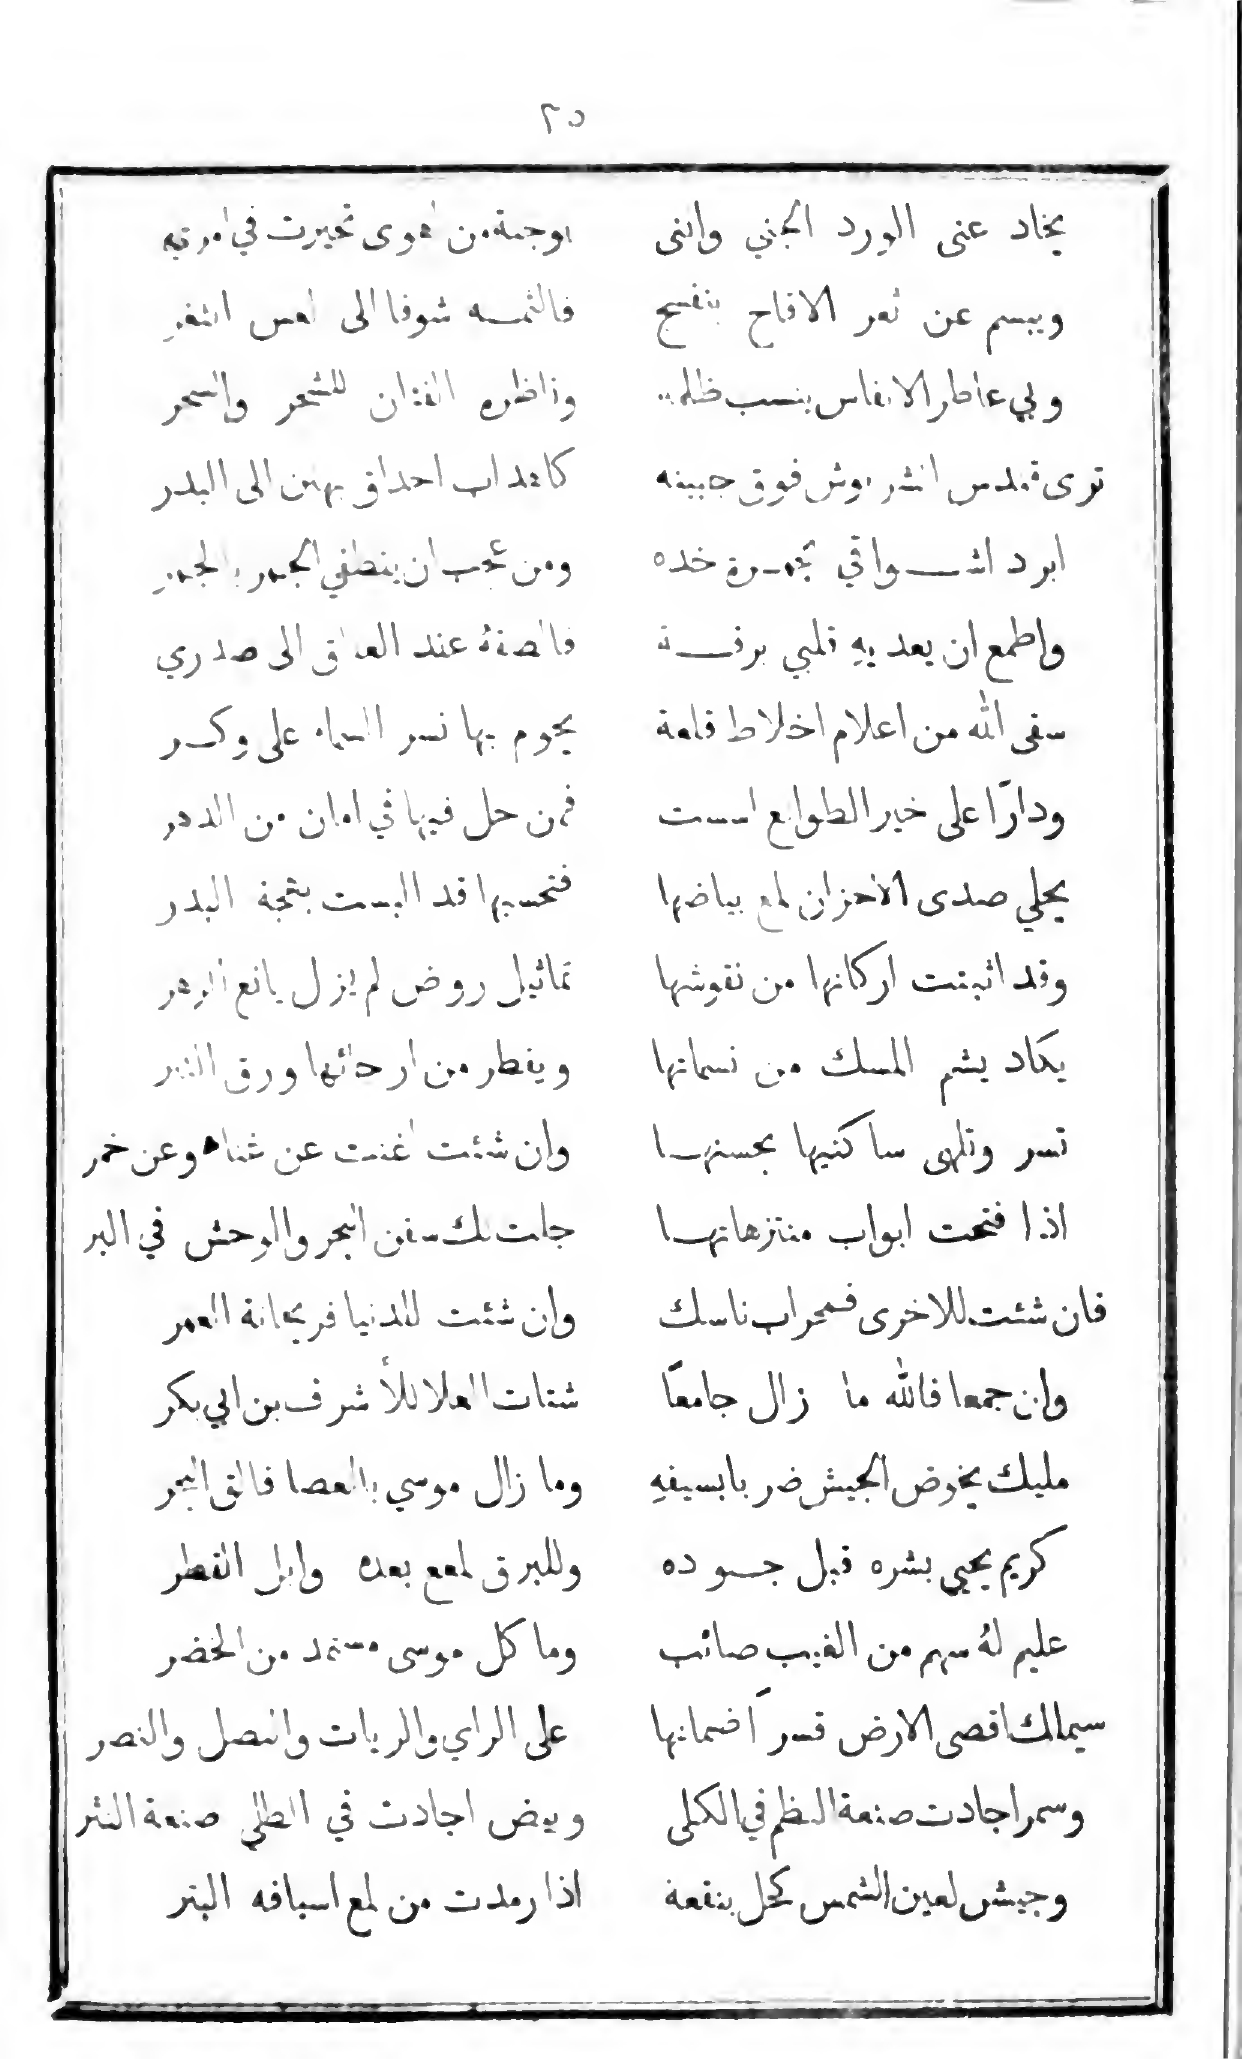 ٢٥
يخاد عنى الورد الجني وانى بوجنة من اهوى تحيرت في امره
ويبسم عن ثغر الاقاح بنفسج فالثمه شوقا الى لعس الثغر
وبي عاطر الانفاس ينسب ظلمه وناظره الفتان للشحر والسحر
ترى قندس الشربوش فوق جبينه كاهداب احداق بهتن الى البدر
ابرد اشواقي بجمرة خده ومن عجب ان ينطفي الجمر بالجمر
واطمع ان يعديه قلبي برقة فالصقهُ عند العناق الى صدري
سقى الله من اعلام اخلاط قلعة يحوم بها نسر السماء على وكر
ودارًا على خير الطوالع اسست فمن حل فيها في امان من الدهر
يجلي صدى الاحزان لمع بياضها فتحسبها قد البست بهجة البدر
وقد اثبتت اركانها من نقوشها تماثيل روض لم يزل يانع الزهر
يكاد يشم المسك من نسماتها ويقطر من ارجائها ورق التبر
تسر وتلهى ساكنيها بحسنها وان شئت اغنت عن غناه وعن خمر
اذا فتحت ابواب منتزهاتها جلت لك سفن البحر والوحش في البر
فان شئت للاخرى فمحراب ناسك وان شئت للدنيا فريحانة العمر
وان جمعا فالله ما زال جامعًا شتات العلا للأشرف بن ابي بكر
مليك يخوض الجيش ضربا بسيفهِ وما زال موسي بالعصا فالق البحر
كريم يحيي بشره قبل جوده وللبرق لمع بعده وابل القطر
عليم لهُ سهم من الغيب صائب وما كل موسى مستمد من الخضر
سيمالك اقصى الارض قسرًا ضمانها على الراي والريات والنصل والنصر
وسمر اجادت صنعة النظم في الكلى وبيض اجادت في الطلي صنعة النثر
وجيش لعين الشمس كحل بنقعة اذا رمدت من لمع اسيافه البتر